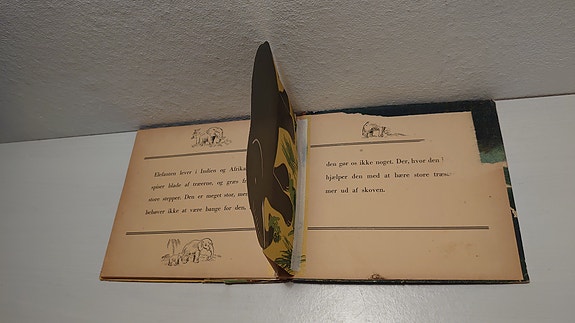 Elefanten lever i Indien og Afrika
spiser blade af træerne, og græs
store stepper. Den er meget stor, men
behøver ikke at være bange for den,
den gør os ikke noget. Der, hvor den
hjælper den med at bære store træ
mer ud af skoven.